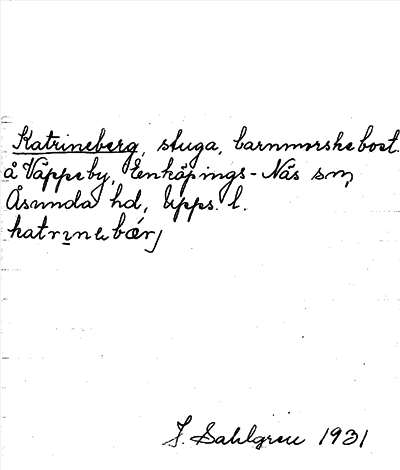 Katrineberg, stuga, barnmorskebost.
å Väppeby, Enköpings-Näs sn,
Åsunda hd, Upps. l.
katrinebærj
J. Sahlgren 1931